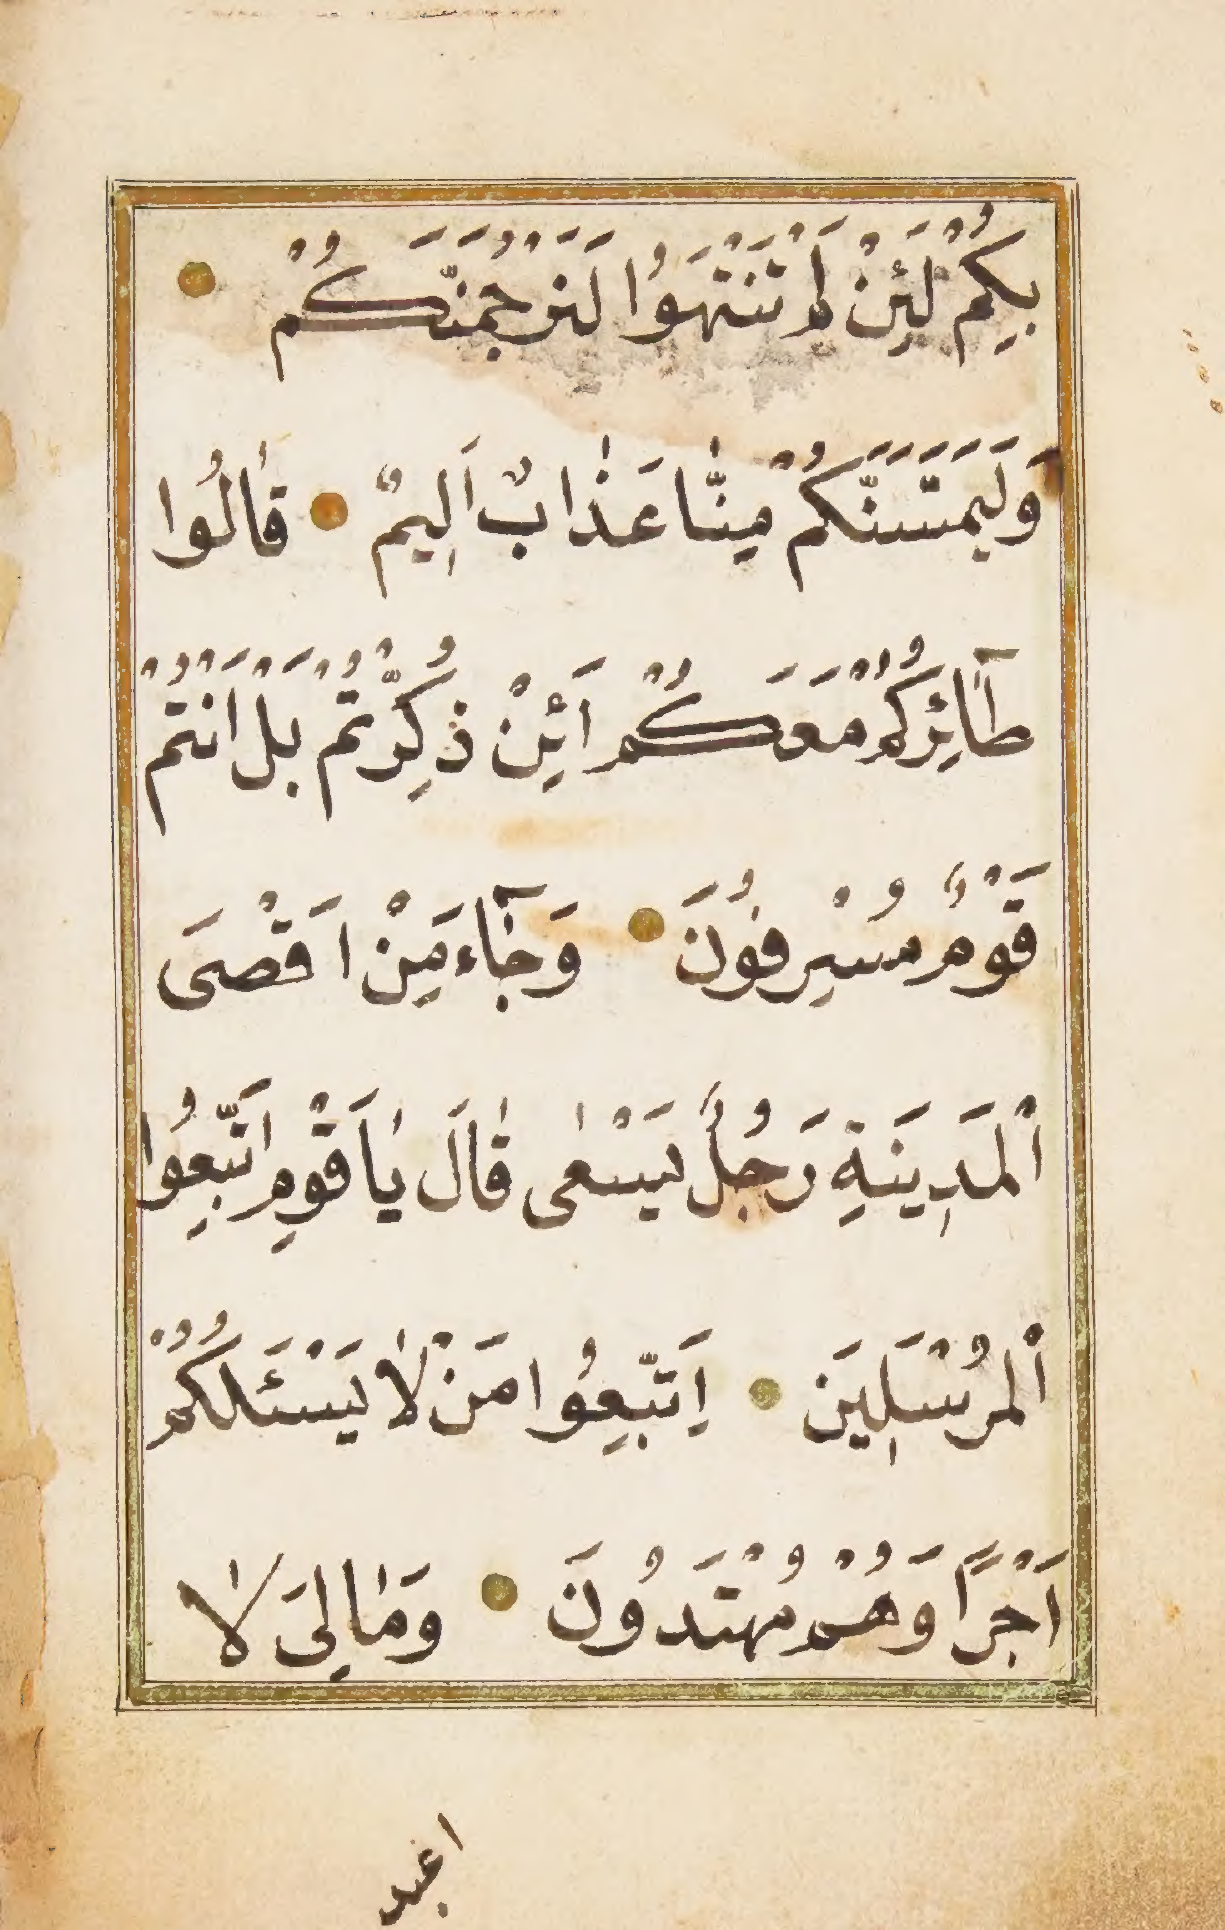 بِكُمْ لَئِنْ لَمْ تَنْتَهَوُا لَنَرْجُمَنَّكُمْ
وَلَيَمَسَّنَّكُمْ مِنَّا عَذَابٌ اَلِيمٌ قَالُوا
طَآئِرُكُمْ مَعَكُمْ اَئِنْ ذُكِّرْتُمْ بَلْ اَنْتُمْ
قَوْمٌ مُسْرِفُونَ وَجَآءَ مِنْ اَقْصَى
اْلمَدِينَةِ رَجُلٌ يَسْعٰى قَالَ يَاقَوْمِ اتَّبِعُوا
اْلمُرْسَلِينَ اِتَّبِعُوا مَنْ لَا يَسْئَلُكُمْ
اَجْرًا وَهُمْ مُهْتَدُونَ وَمَا لِىَ لَا
اعبد